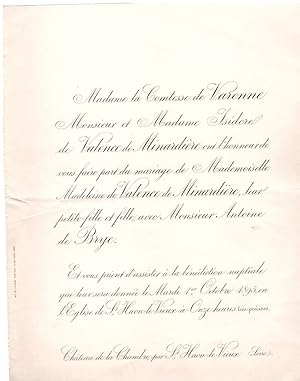 Madame la Comtesse de Varenne
Monsieur et Madame Isidore
de Valence de Minardière ont l'honneur de
vous faire part du mariage de Mademoiselle
Madeleine de Valence de Minardière, leur
petite fille et fille, avec Monsieur Antoine
de Brye.
Et vous prient d'assister à la bénédiction nuptiale
qui leur sera donnée le Mardi 1er Octobre 1895, en
l'Eglise de St Haon-le-Vieux à Onze heures très-précises.
Château de la Chambre, par St Haon-le-Vieux (Loire).